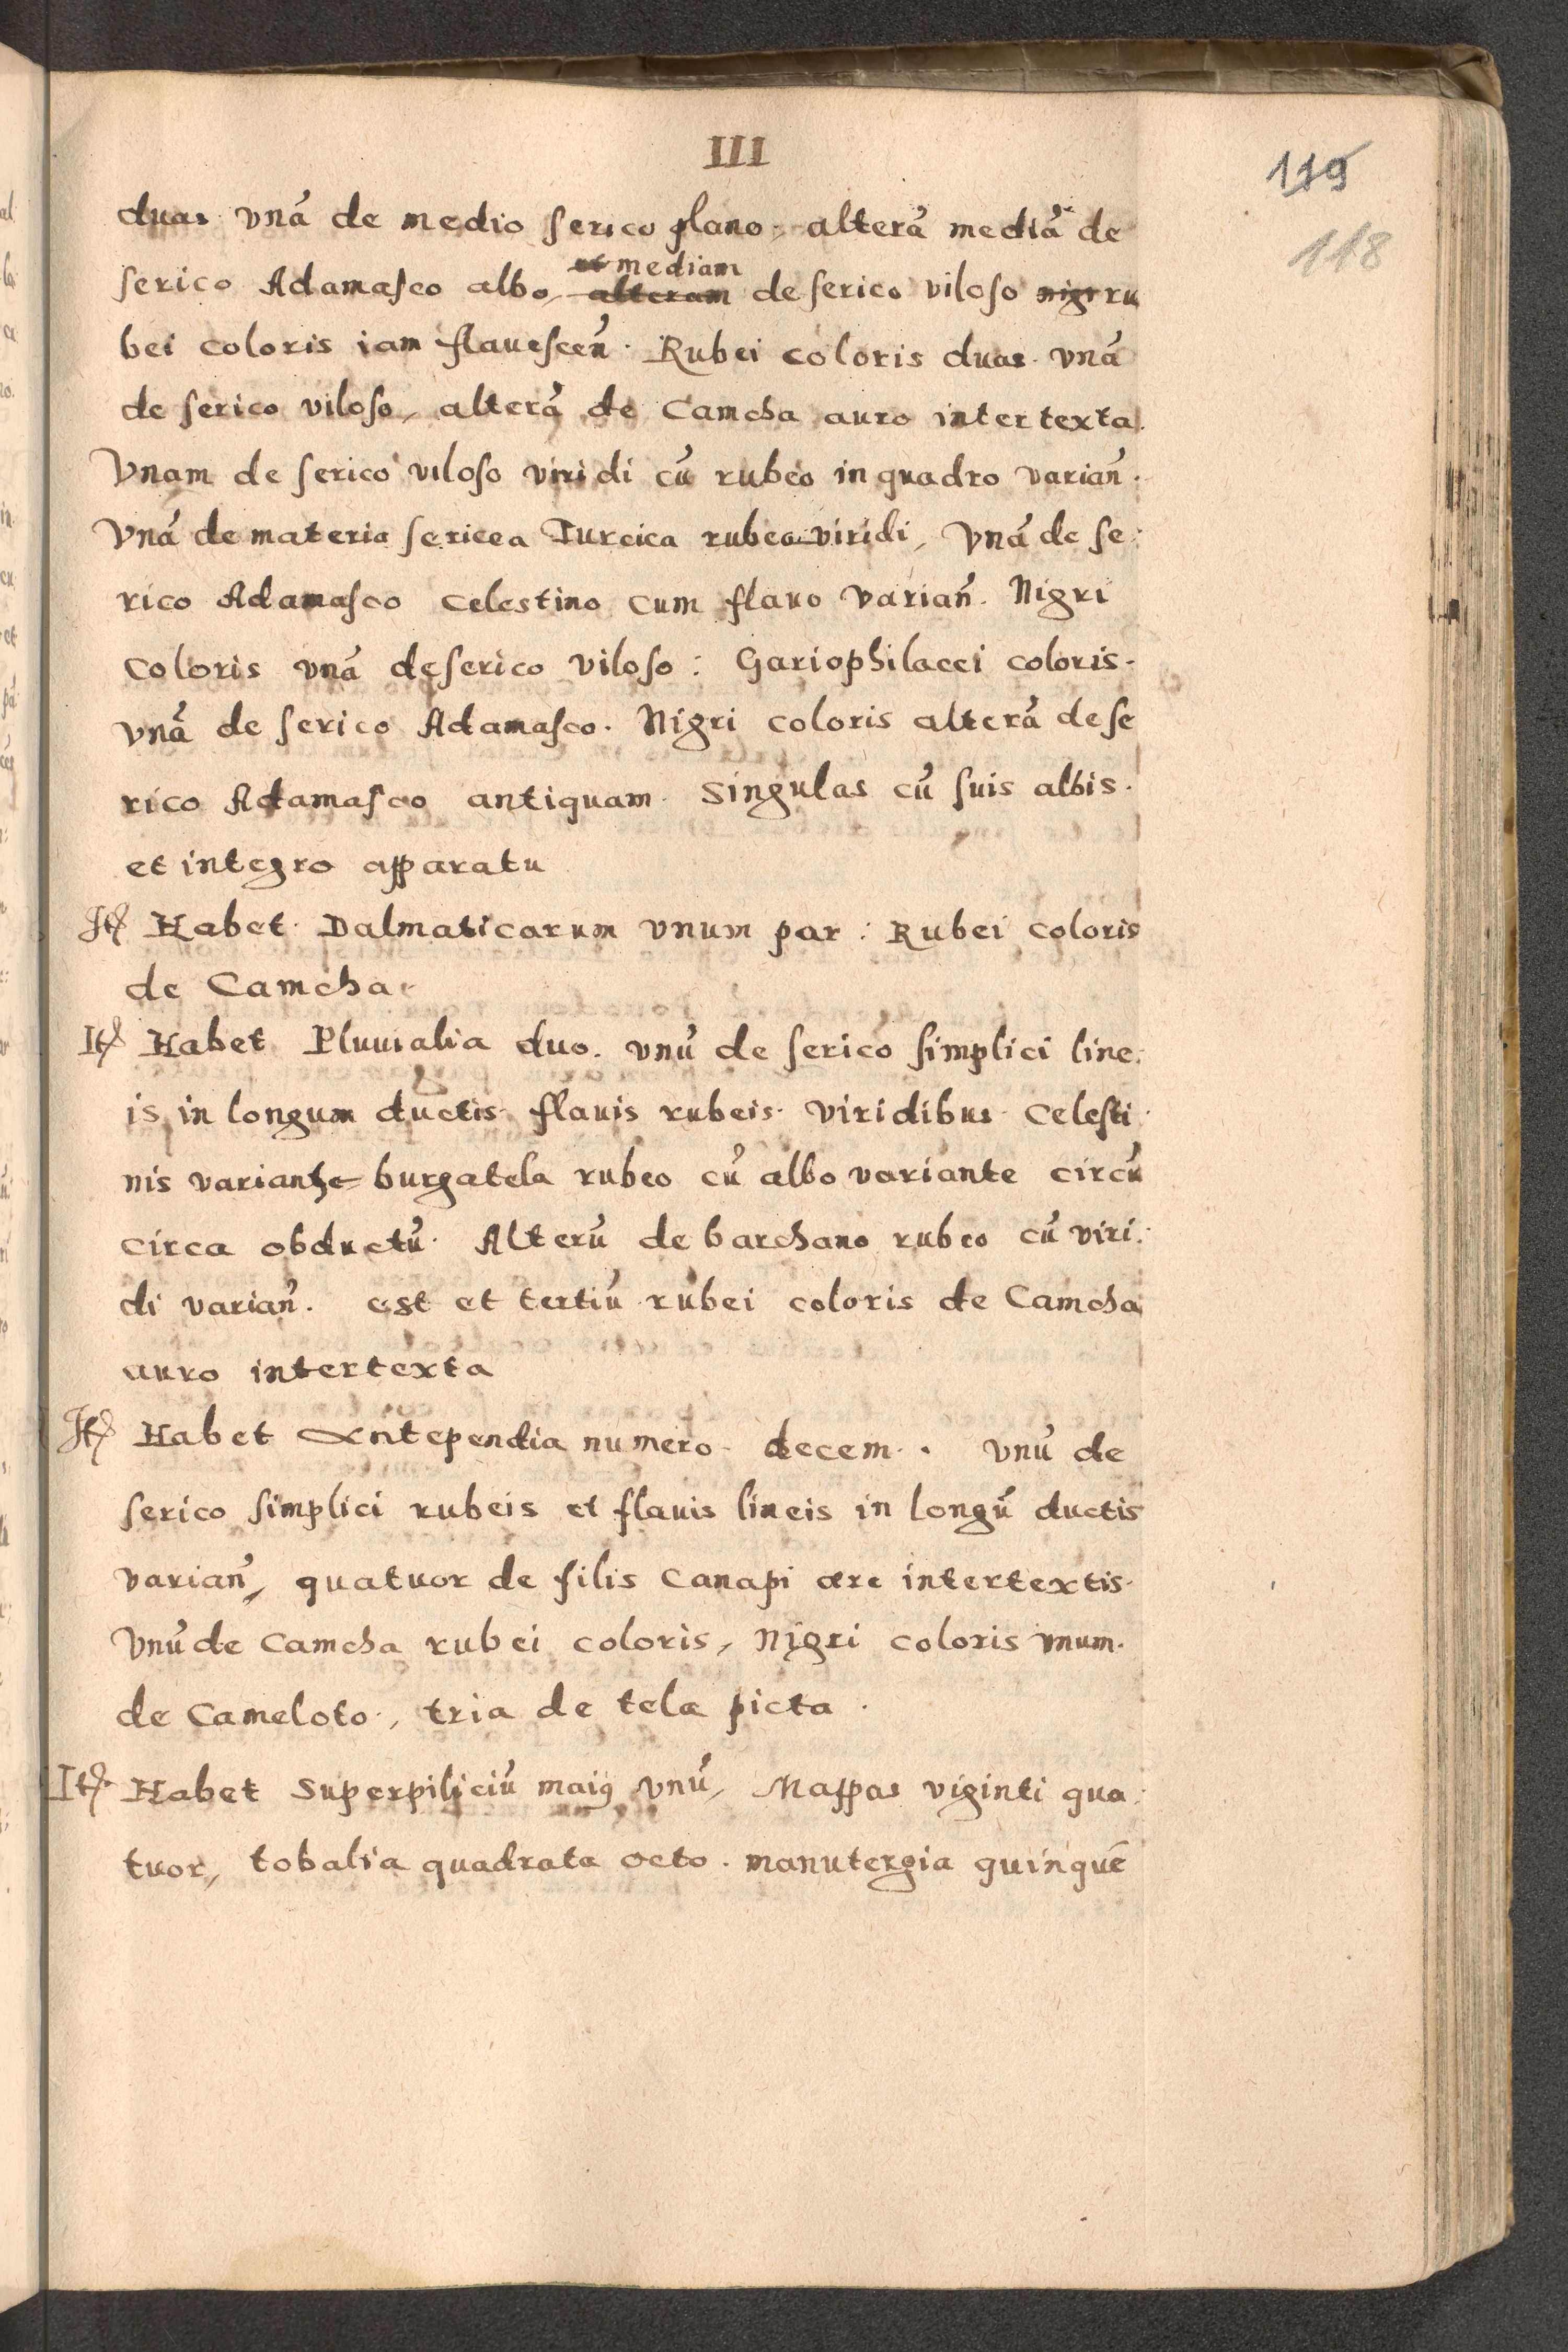 III
119
118
duas vnā de medio serico plano, alterā mediā de
et mediam
serico Adamasco albo, alteram de serico viloso nigr ru
bei coloris iam flauescen̄. Rubei coloris duas. vnā
de serico viloso, alterā de Camcha auro intertexta.
Vnam de serico viloso viridi cū rubeo in quadro varian̄.
Vnā de materia sericea Turcica rubeo viridi, Vnā de se:
rico Adamasco celestino cum flauo varian̄. Nigri
Coloris vnā de serico viloso: Gariophilacei coloris.
vnā de serico Adamasco. Nigri coloris alterā de se
rico Adamasco antiquam. Singulas cū suis albis.
et integro apparatu
It. Habet Dalmaticarum vnum par: Rubei coloris
de Camcha.
It. Habet Pluuialia duo. vnū de serico simplici line:
is in longum ductis. flauis rubeis. viridibus. Celesti:
nis variante burgatela rubeo cū albo variante circū
circa obductū. Alterū de barchano rubeo cū viri:
di varian̄. est et tertiū rubei coloris de Camcha
auro intertexta
It. Habet Antependia numero decem. vnū de
serico simplici rubeis et flauis lineis in longū ductis
varian̄, quatuor de filis Canapi ære intertextis.
Vnū de Camcha rubei coloris, Nigri coloris vnum.
de Cameloto, tria de tela picta.
It. Habet Superpiliciū maiꝰ vnū, Mappas viginti qua:
tuor, tobalia quadrata octo. manutergia quinquē